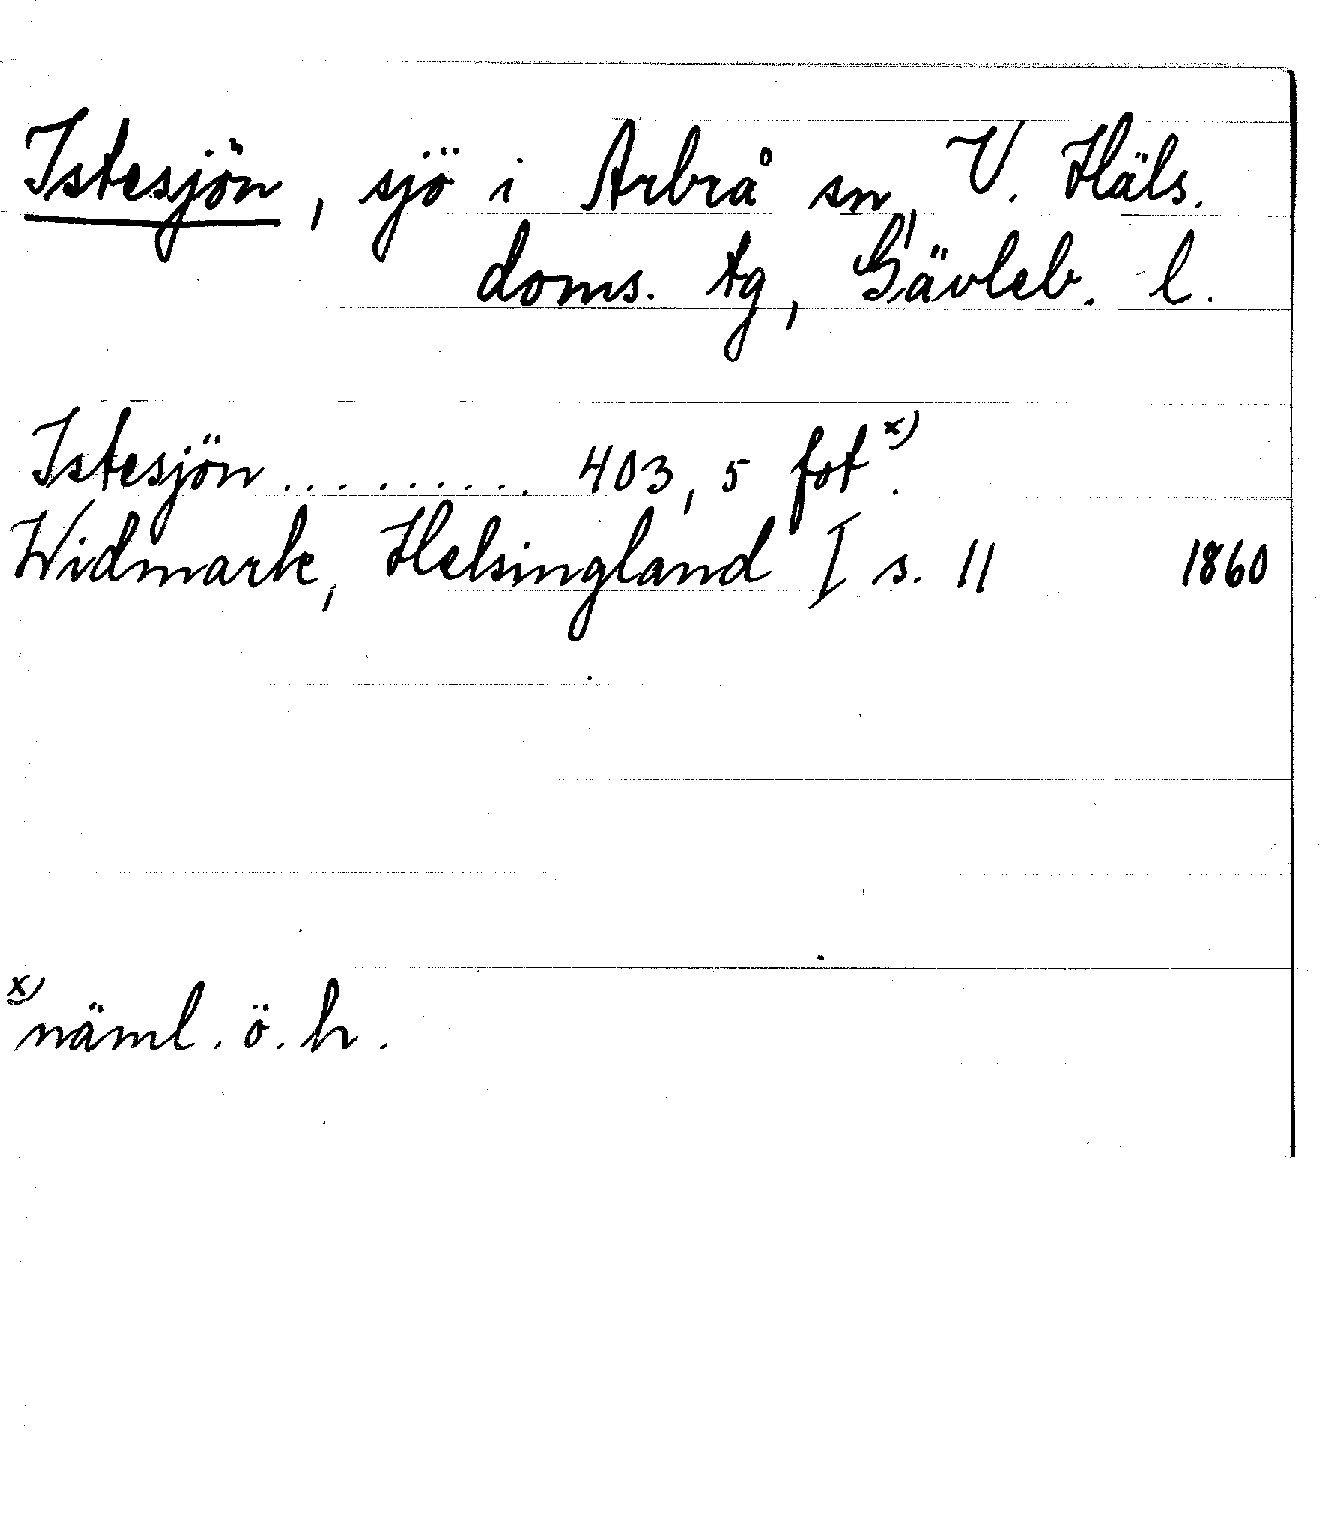 Istesjön, sjö i Arbrå sn, V. Häls.
doms. tg, Gävleb. l.
Istesjön ......... 403,5 fot x).
Widmark, Helsingland I s. 11 1860
x) näml. ö. h.